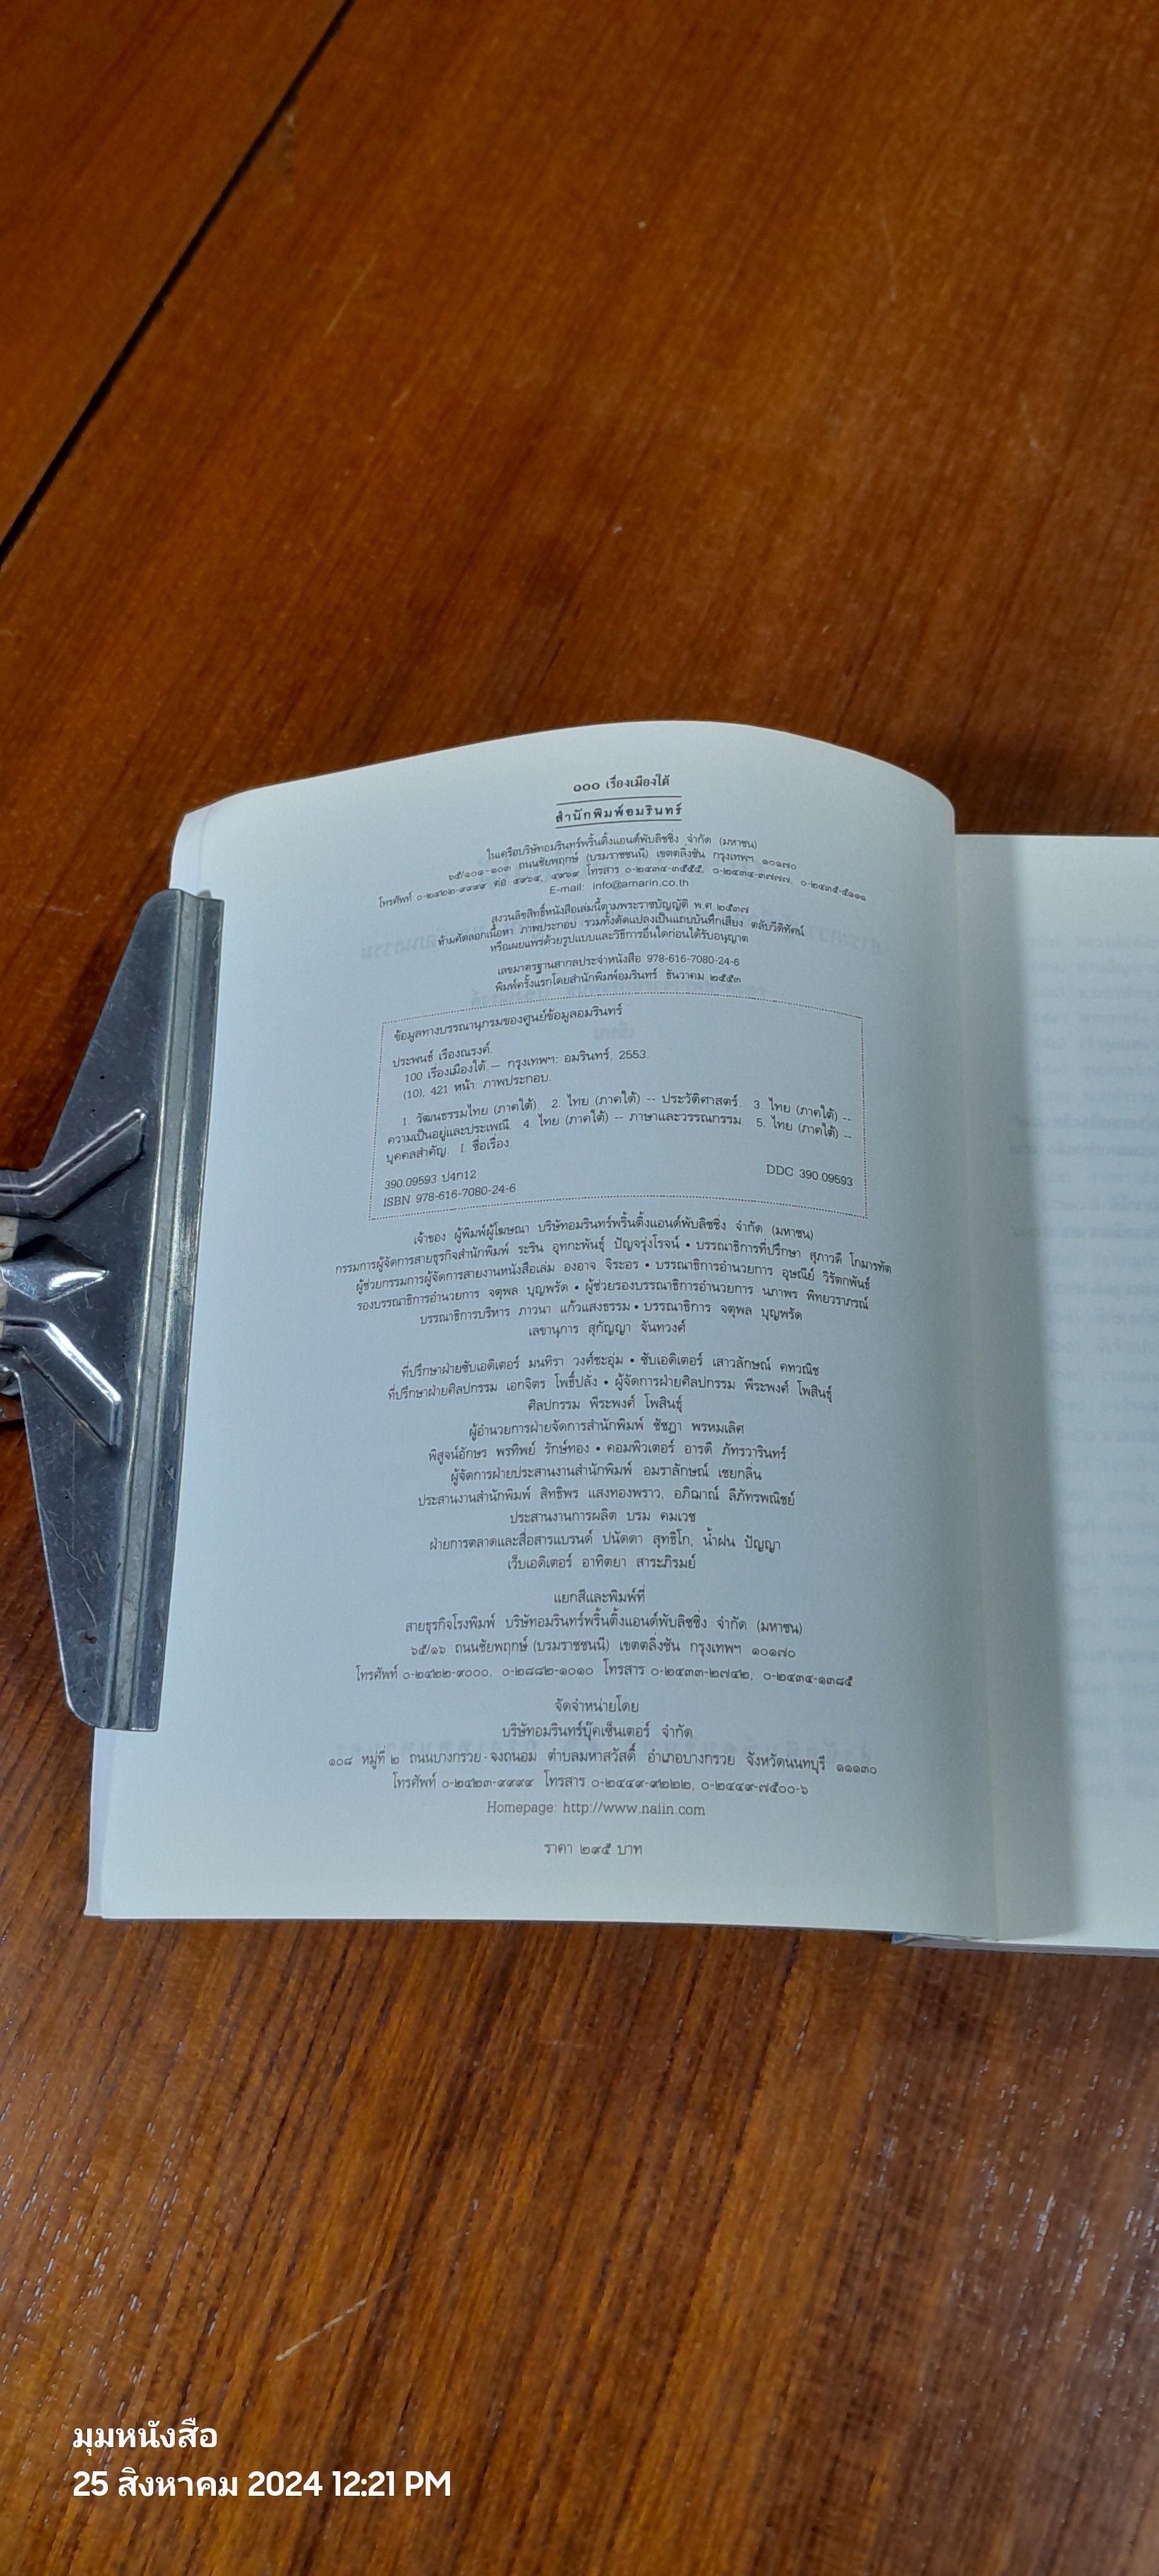 ๑๐๐ เรื่องเมืองใต้
สำนักพิมพ์อมรินทร์
ในเครือบริษัทอมรินทร์พริ้นติ้งแอนด์พับลิชชิ่ง จำกัด (มหาชน)
๖๕/๑๐๑-๑๐๓ ถนนชัยพฤกษ์ (บรมราชชนนี) เขตตลิ่งชัน กรุงเทพฯ ๑๐๑๗๐
โทรศัพท์ ๐-๒๔๒๒-๙๙๙๙ ต่อ ๔๙๖๔, ๔๙๖๙ โทรสาร ๐-๒๔๓๔-๓๕๕๕, ๐-๒๔๓๔-๓๗๗๗, ๐-๒๔๓๕-๕๑๑๑
E-mail: info@amarin.co.th
สงวนลิขสิทธิ์หนังสือเล่มนี้ตามพระราชบัญญัติ พ.ศ. ๒๕๓๗
ห้ามคัดลอกเนื้อหา ภาพประกอบ รวมทั้งดัดแปลงเป็นแถบบันทึกเสียง ตลับวีดิทัศน์
หรือเผยแพร่ด้วยรูปแบบและวิธีการอื่นใดก่อนได้รับอนุญาต
เลขมาตรฐานสากลประจำหนังสือ 978-616-7080-24-6
พิมพ์ครั้งแรกโดยสำนักพิมพ์อมรินทร์ ธันวาคม ๒๕๕๓
ข้อมูลทางบรรณานุกรมของศูนย์ข้อมูลอมรินทร์
ประพนธ์ เรืองณรงค์.
100 เรื่องเมืองใต้.— กรุงเทพฯ: อมรินทร์, 2553.
(10), 421 หน้า: ภาพประกอบ.
1. วัฒนธรรมไทย (ภาคใต้). 2. ไทย (ภาคใต้) -- ประวัติศาสตร์. 3. ไทย (ภาคใต้) --
ความเป็นอยู่และประเพณี. 4. ไทย (ภาคใต้) -- ภาษาและวรรณกรรม. 5. ไทย (ภาคใต้) --
บุคคลสำคัญ. I. ชื่อเรื่อง.
390.09593 ป4ท12 DDC 390.09593
ISBN 978-616-7080-24-6
เจ้าของ ผู้พิมพ์ผู้โฆษณา บริษัทอมรินทร์พริ้นติ้งแอนด์พับลิชชิ่ง จำกัด (มหาชน)
กรรมการผู้จัดการสายธุรกิจสำนักพิมพ์ ระริน อุทกะพันธุ์ ปัญจรุ่งโรจน์ • บรรณาธิการที่ปรึกษา สุภาวดี โกมารทัต
ผู้ช่วยกรรมการผู้จัดการสายงานหนังสือเล่ม องอาจ จิระอร • บรรณาธิการอำนวยการ อุษณีย์ วิรัตกพันธ์
รองบรรณาธิการอำนวยการ จตุพล บุญพรัด • ผู้ช่วยรองบรรณาธิการอำนวยการ นภาพร พิทยวราภรณ์
บรรณาธิการบริหาร ภาวนา แก้วแสงธรรม • บรรณาธิการ จตุพล บุญพรัด
เลขานุการ สุกัญญา จันทวงศ์
ที่ปรึกษาฝ่ายซับเอดิเตอร์ มนทิรา วงศ์ชะอุ่ม • ซับเอดิเตอร์ เสาวลักษณ์ คทวณิช
ที่ปรึกษาฝ่ายศิลปกรรม เอกจิตร โพธิ์ปลั่ง • ผู้จัดการฝ่ายศิลปกรรม พีระพงศ์ โพสินธุ์
ศิลปกรรม พีระพงศ์ โพสินธุ์
ผู้อำนวยการฝ่ายจัดการสำนักพิมพ์ ชัชฎา พรหมเลิศ
พิสูจน์อักษร พรทิพย์ รักษ์ทอง • คอมพิวเตอร์ อารดี ภัทรวารินทร์
ผู้จัดการฝ่ายประสานงานสำนักพิมพ์ อมราลักษณ์ เชยกลิ่น
ประสานงานสำนักพิมพ์ สิทธิพร แสงทองพราว, อภิฌาณ์ ลีภัทรพณิชย์
ประสานงานการผลิต บรม คมเวช
ฝ่ายการตลาดและสื่อสารแบรนด์ ปนัดดา สุทธิโก, น้ำฝน ปัญญา
เว็บเอดิเตอร์ อาทิตยา สาระภิรมย์
แยกสีและพิมพ์ที่
สายธุรกิจโรงพิมพ์ บริษัทอมรินทร์พริ้นติ้งแอนด์พับลิชชิ่ง จำกัด (มหาชน)
๖๕/๑๖ ถนนชัยพฤกษ์ (บรมราชชนนี) เขตตลิ่งชัน กรุงเทพฯ ๑๐๑๗๐
โทรศัพท์ ๐-๒๔๒๒-๙๐๐๐, ๐-๒๘๘๒-๑๐๑๐ โทรสาร ๐-๒๔๓๓-๒๗๔๒, ๐-๒๔๓๔-๑๓๘๕
จัดจำหน่ายโดย
บริษัทอมรินทร์บุ๊คเซ็นเตอร์ จำกัด
๑๐๘ หมู่ที่ ๒ ถนนบางกรวย-จงถนอม ตำบลมหาสวัสดิ์ อำเภอบางกรวย จังหวัดนนทบุรี ๑๑๑๓๐
โทรศัพท์ ๐-๒๔๒๓-๙๙๙๙ โทรสาร ๐-๒๔๔๙-๙๒๒๒, ๐-๒๔๔๙-๗๕๐๐-๖
Homepage: http://www.naiin.com
ราคา ๒๙๕ บาท
มุมหนังสือ
25 สิงหาคม 2024 12:21 PM